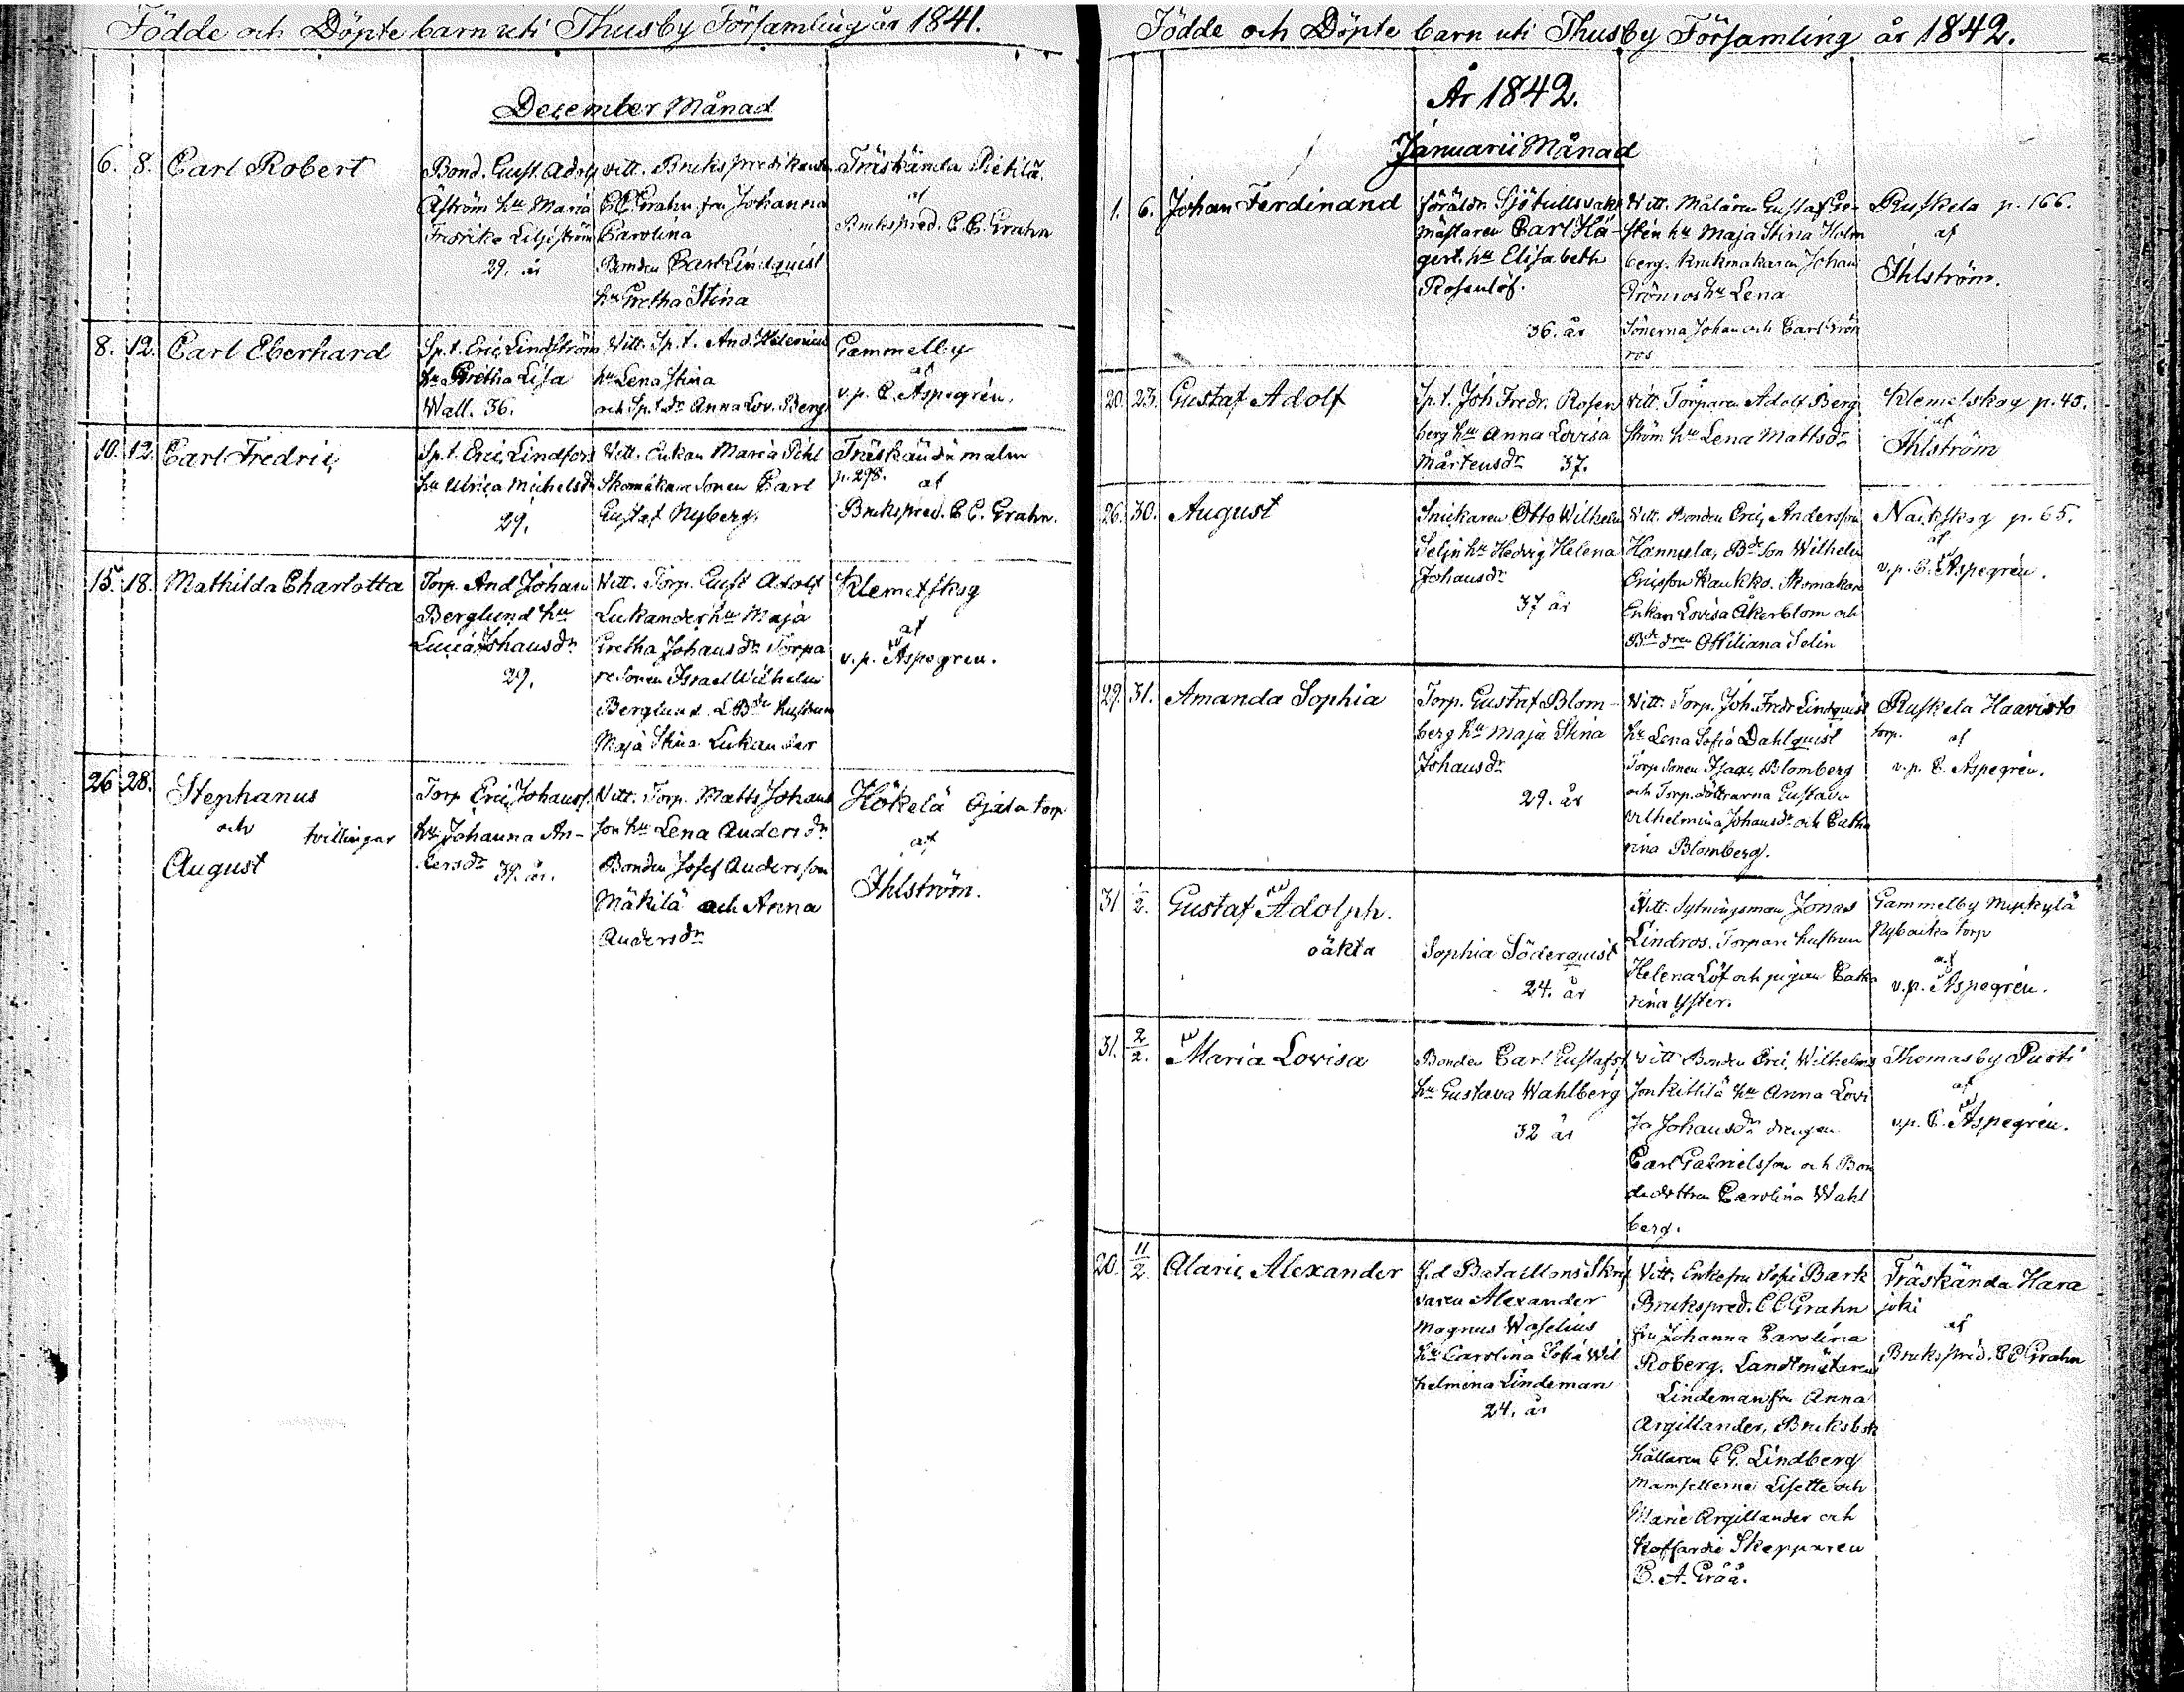 Födde och Döpte barn uti Thusby Församling år 1841.
December Månad
6. 8. Carl Robert
Bond. Gust. Adolf
Åström hu Maria
Fredrika Liljeström
29. år
Vitt. Brukspredikanten
C.C. Grahn fru Johanna
Carolina
Bonden Carl Lindquist
hu Gretha Stina
Träskända Pietilä.
af
Brukspred. C.C. Grahn
8. 12. Carl Eberhard
Sp.t. Eric Lindström
hu Gretha Lisa
Wall. 36.
Vitt. Sp.t. And. Helenius
hu Lena Stina
och Sp.t.dr Anna Lov. Berg
Gammelby
af
v.p. C. Aspegrén.
10. 12. Carl Fredric
Sp.t. Eric Lindfors
hu Ulrica Michelsdr
29.
Vitt. Enkan Maria Pihl
Skomakare Sonen Carl
Gustaf Nyberg.
Träskända malm
p. 298. af
Brukspred. C.C. Grahn.
15. 18. Mathilda Charlotta
Torp. And Johan
Berglund hu
Lucia Johansdr
29.
Vitt. Torp. Gust Adolf
Lukander hu Maja
Gretha Johansdr Torpa
re Sonen Israel Wilhelm
Berglund. & Bde hustrun
Maja Stina Lukander
Klemetskog
af
v.p. Aspegren.
26 28. Stephanus
och tvillingar
August
Torp Eric Johanss.
hu Johanna An-
dersdr 39. år.
Vitt. Torp. Matts Johans
son hu Lena Andersdr
Bonden Josef Andersson
Mäkilä och Anna
Andersdr
Hökelä Ojala torp
af
Ihlström.
Födde och Döpte barn uti Thusby Församling år 1842.
År 1842.
Januarii Månad
1. 6. Johan Ferdinand
föräldr Sjötullsvakt
mästaren Carl Hä-
gert. hu Elisabeth
Rosenlöf.
36. år
Vitt. Målaren Gustaf Ge-
stén hu Maja Stina Holm
berg. Krukmakaren Johan
Grönros hu Lena
Sönerna Johan och Carl Grön
ros
Ruskela p. 166.
af
Ihlström.
20. 23. Gustaf Adolf
Sp.t. Joh Fredr. Rosen
berg hu Anna Lovisa
Mårtensdr 37.
Vitt. Torparen Adolf Berg
ström hu Lena Mattsdr
Klemetskog p. 45.
af
Ihlström
26. 30. August
Snickaren Otto Wilhelm
Selin hu Hedvig Helena
Johansdr
37 år
Vitt. Bonden Eric Andersson
Hannula, Bde Son Wilhelm
Ericsson Kaukko. Skomakare
Enkan Lovisa Åkerblom och
Bde dren Ottiliana Selin
Nackskog p. 65.
af
v.p. C. Aspegrén.
29. 31. Amanda Sophia
Torp. Gustaf Blom-
berg hu Maja Stina
Johansdr
29. år
Vitt. Torp. Joh. Fredr Lindquist
hu Lena Sofia Dahlquist
Torp Sonen Isaac Blomberg
och Torp.döttrarna Gustava
Vilhelmina Johansdr och Catha
rina Blomberg.
Ruskela Haavisto
torp. af
v.p. C. Aspegrén.
31 1/2. Gustaf Adolph.
oäkta
Sophia Söderquist
24. år
Vitt. Sytningsman Jonas
Lindros. Torpare hustrun
Helena Löf och pigan Catha
rina Yster.
Gammelby
Nybacka torp
af
v.p. Aspegrén.
31. 2/2. Maria Lovisa
Bonden Carl Gustafs.
hu Gustava Wahlberg
32 år
Vitt Bonden Eric Wilhelms
son Kittilä hu Anna Lovi
sa Johansdr drengen
Carl Gabrielsson och Bon
dedottren Carolina Wahl
berg.
Thomasby Puosi
af
v.p. C. Aspegrén.
20. 11/2. Alaric Alexander
f.d Bataillons Skrif
varen Alexander
Magnus Waselius
hu Carolina Sofia Wil
helmina Lindeman
24. år
Vitt. Enkefru Sofi Bark
Brukspred. C C Grahn
fru Johanna Carolina
Roberg. Landtmätaren
Lindeman fru Anna
Argillander, Bruksbok
hållaren C G. Lindberg
Mamsellerna Lisette och
Marie Argillander och
Koffardie Skepparen
C. A. Gråå.
Träskända Hara
joki
af
Brukspred. C C Grahn